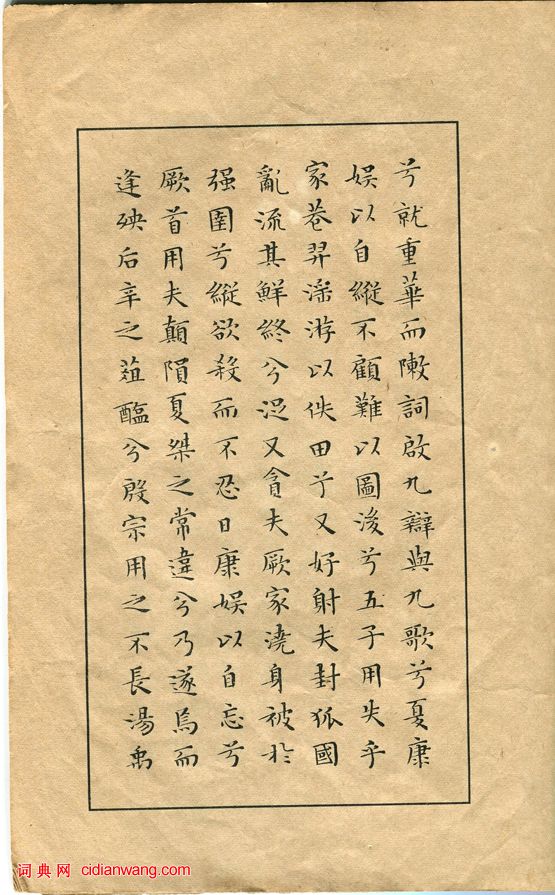 兮就重華而敶詞啟九辯與九歌兮夏康
娛以自縱不顧難以圖後兮五子用失乎
家巷羿淫游以佚田兮又好射夫封狐國
亂流其鮮終兮浞又貪夫厥家澆身被於
强圉兮縱欲殺而不忍日康娛以自忘兮
厥首用夫顛隕夏桀之常違兮乃遂焉而
逢殃后辛之菹醢兮殷宗用之不長湯禹
词典网 cidianwang.com